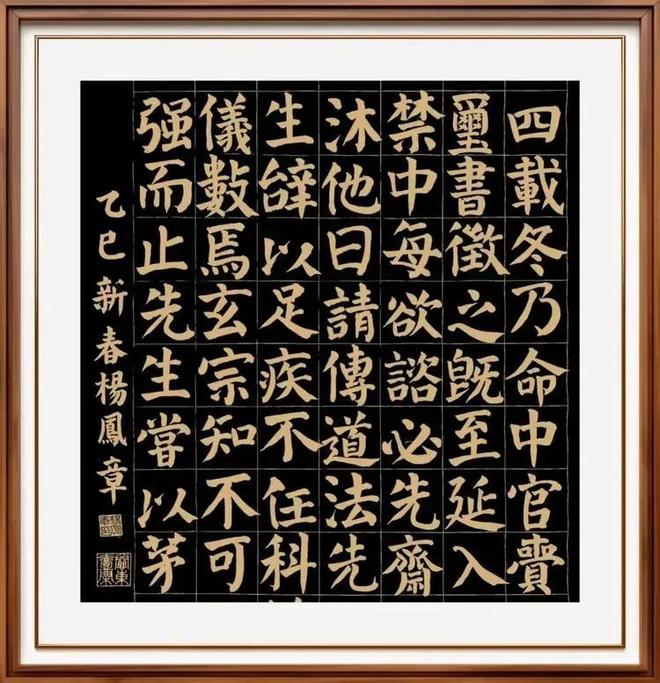 四載冬乃命中官賷
璽書徵之既至延入
禁中每欲諮必先齋
沐他日請傳道法先
生辝以足疾不任科
儀數焉玄宗知不可
强而止先生嘗以茅
乙巳新春楊鳳章